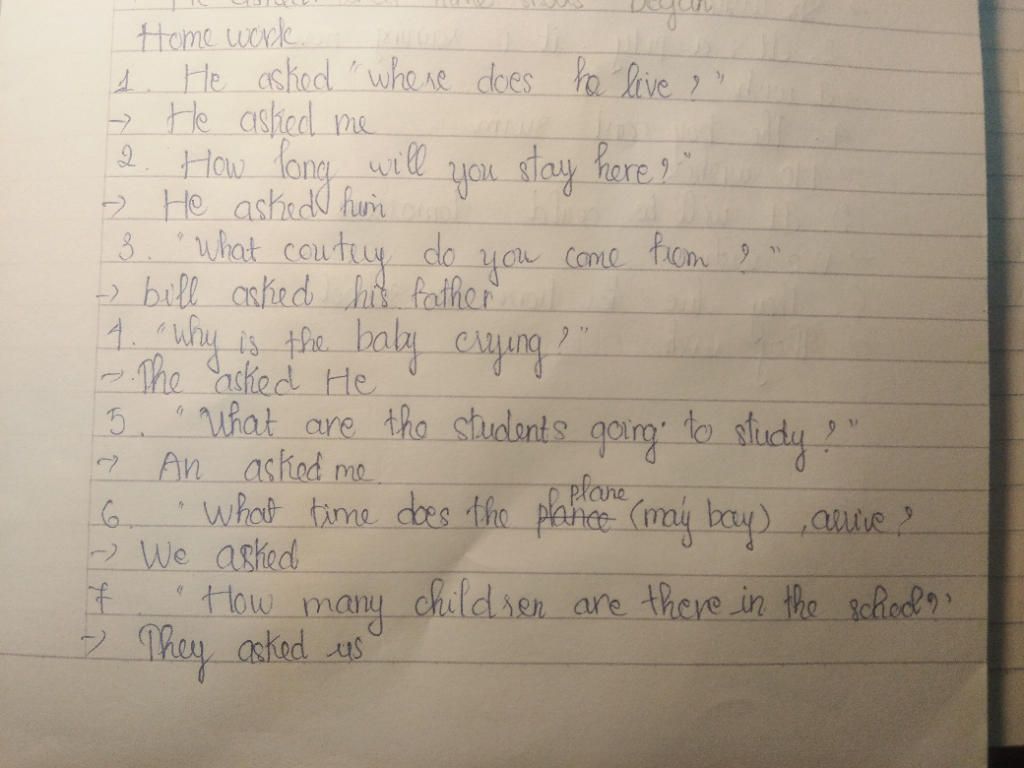 began
Home work
1. He asked "where does he live?"
-> He asked me
2. How long will you stay here?"
-> He asked him
3. "What coutry do you come from?"
-> bill asked his father
4. "Why is the baby crying?"
->. The asked He
5. "What are the students going to study?"
-> An asked me.
plane
6. "What time does the (máy bay), arrive?
-> We asked
7. "How many children are there in the school?"
-> They asked us